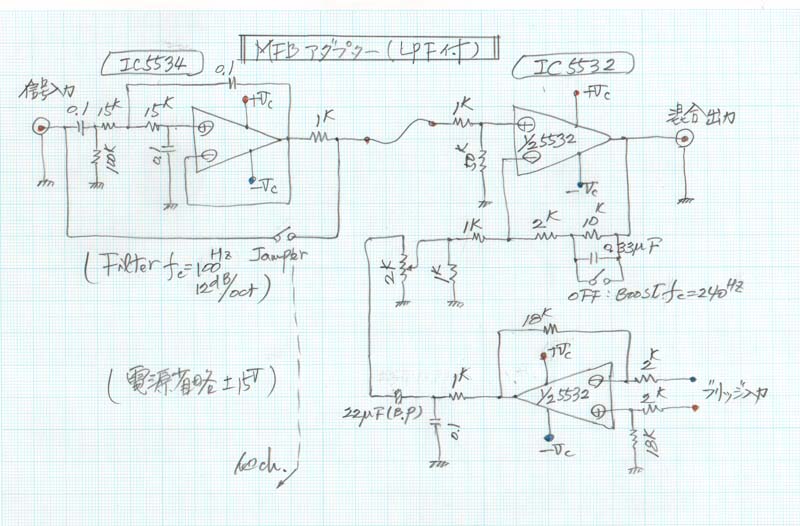 MFBアダプター(LPF付)
IC5534
IC5532
信号入力
0.1
0.1
15K
15K
1K
+Vc
-Vc
0.1
(Filter fc=100Hz
12dB/oct)
Jampər
1K
+Vc
1/2 5532
-Vc
混合出力
1K
2K
10K
0.33μF
2K
1K
OFF:BOOST.fc=240Hz
18K
+Vc
1K
1/2 5532
2K
2K
ブリッジ入力
22μF(B.P)
0.1
-Vc
18K
(電源省略±15V)